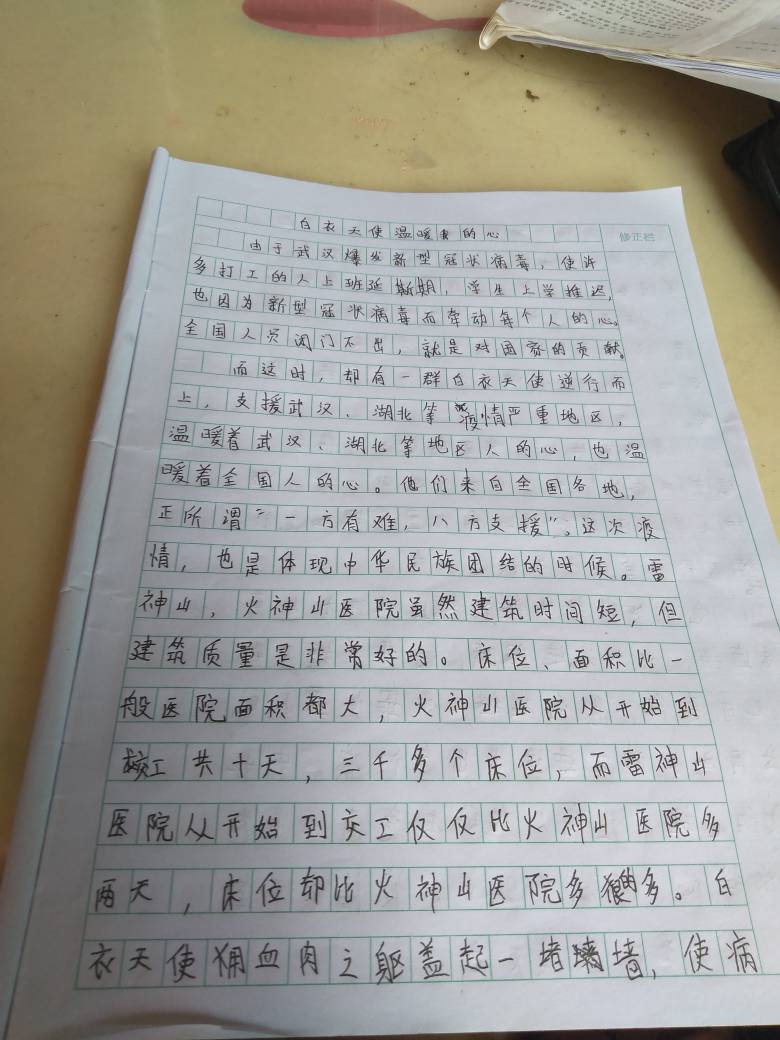 白衣天使温暖的心
修正栏
由于武汉爆发新型冠状病毒，使许
多打工的人上班延期，学生上学推迟，
也因为新型冠状病毒而牵动每个人的心。
全国人员闭门不出，就是对国家的贡献。
而这时，却有一群白衣天使逆行而
上，支援武汉、湖北等疫情严重地区，
温暖着武汉、湖北等地区人的心，也温
暖着全国人的心。他们来自全国各地，
正所谓“一方有难，八方支援”。这次疫
情，也是体现中华民族团结的时候。雷
神山，火神山医院虽然建筑时间短，但
建筑质量是非常好的。床位、面积比一
般医院面积都大，火神山医院从开始到
工共十天，三千多个床位，而雷神山
医院从开始到交工仅仅比火神山医院多
两天，床位却比火神山医院多的多。白
衣天使用血肉之躯盖起一堵墙，使病